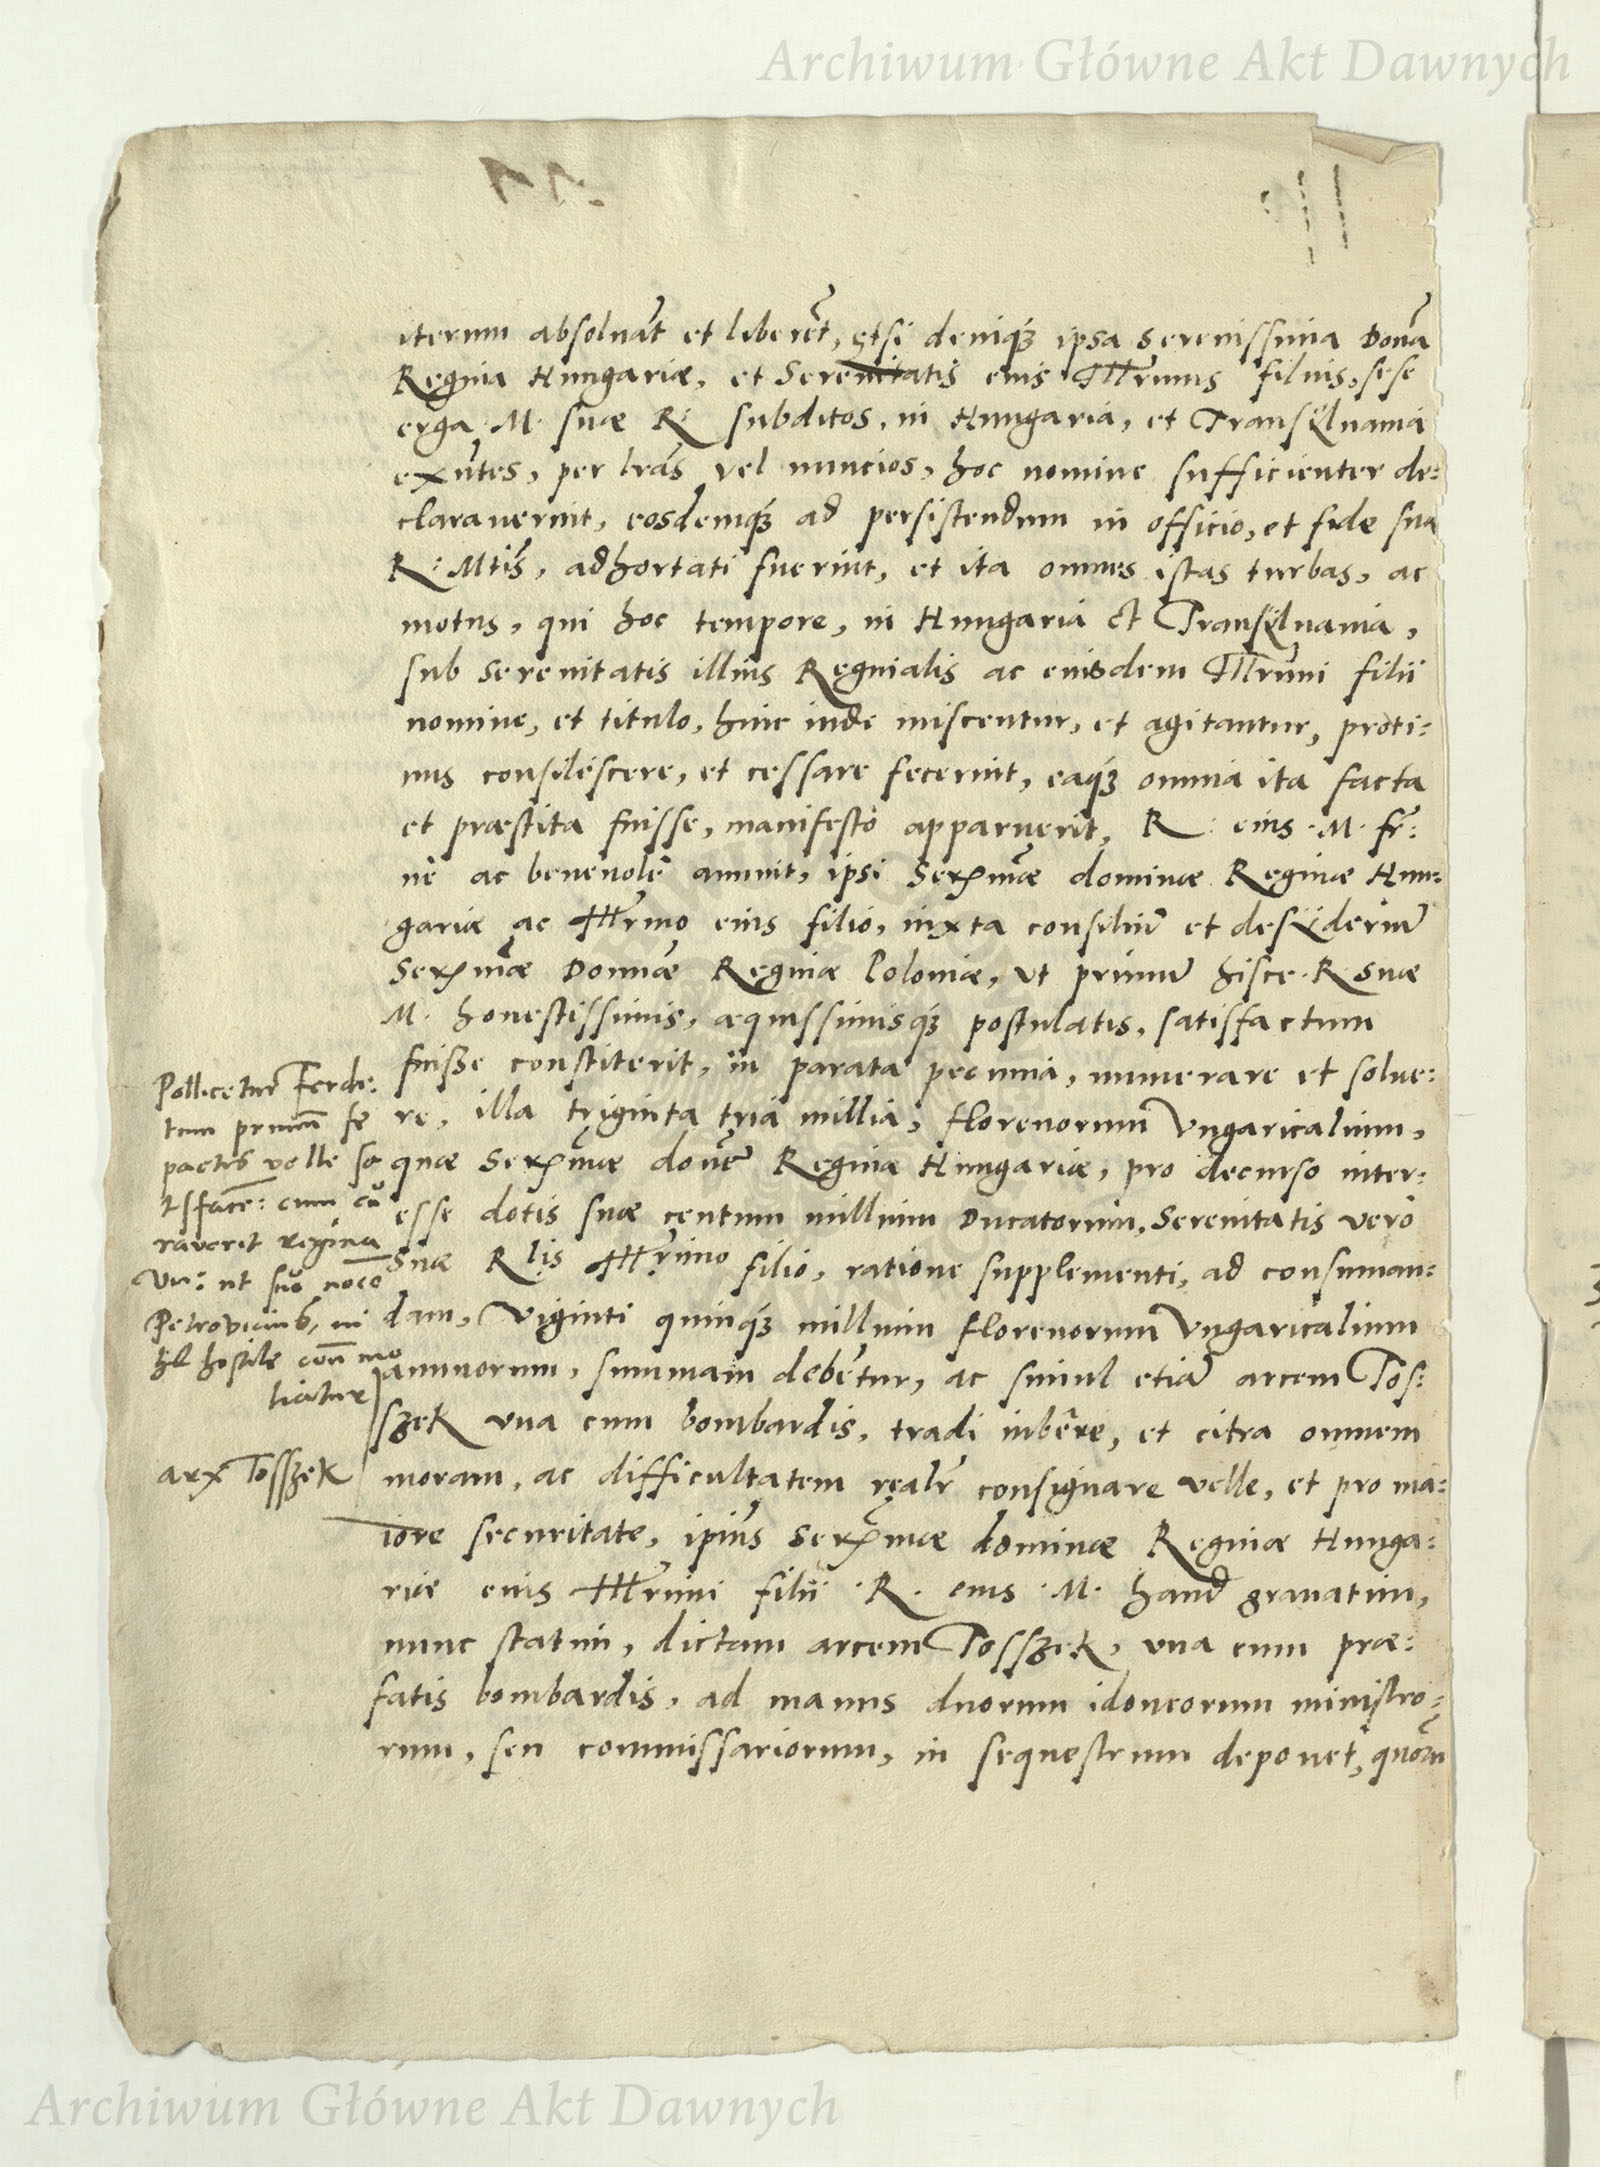 Archiwum Główne Akt Dawnych
iterum absoluãt et liberẽt, etsi deniq́ꝫ ipsa Serenissima Donã
Regina Hungariæ, et Serenitatis eius Illr̃imus filius, sese
erga M. suæ R. subditos, in Hungaria, et Transÿluania
exñtes, per lrãs vel nuncios, hoc nomine sufficienter de:
clarauerint, eosdemq́ꝫ ad persistendum in officio, et fide sua
R: Mtis̃, adhortati fuerint, et ita omnes istas turbas, ac
motus, qui hoc tempore, in Hungaria et Transÿluania,
sub Serenitatis illius Reginalis ac eiusdem Illr̃imi filii
nomine, et titulo, hinc inde miscentur, et agitantur, proti:
nus consilescere, et cessare fecerint, eaq́ꝫ omnia ita facta
et præstita fuisse, manifestò apparuerit, R. eius .M. fr̃:
nè ac beneuolè annuit, ipsi Serx̃mæ dominæ Reginæ Hun:
gariæ ac Illr̃mo eius filio, iuxta consiliũ et desÿderiũ
Serx̃mæ Donnæ Reginæ Poloniæ, vt primũ hisce .R. suæ
M. honestissimis, æquissimisq́ꝫ postulatis, satisfactum
fuisse constiterit, in parata pecunia, numerare et solue:
re, illa triginta tria millia, florenorum Vngaricalium,
quæ Serx̃mæ donẽ Reginæ Hungariæ, pro decurso inter:
esse dotis suæ centum millium Ducatorum, Serenitatis verò
Suæ Rlis Illr̃imo filio, ratione supplementi, ad consuman:
dam, Viginti quinq́ꝫ millium florenorum Vngaricalium
annuorum, summam debẽtur, ac simul etiã arcem Tos:
szek vna cum bombardis, tradi iubere, et citra omnem
moram, ac difficultatem realr̃ consignare velle, et pro ma:
iore securitate, ipius̃ Serx̃mæ dominæ Reginæ Hunga:
riæ eius Illr̃imi filii .R. eius .M. haud grauatim,
nunc statim, dictam arcem Tosszek, vna cum præ:
fatis bombardis, ad manus duorum idoneorum ministro:
rum, seu commissariorum, in sequestrum deponet, quõrũ
Pollicetur Ferdi:
tum primũ se
pactis velle sa
tisfacẽ: cum cũ
raverit regina
Vn: ut suo noïe
Petrovicius, ni
hil hostile
liatur
arx Tosszek
Archiwum Główne Akt Dawnych